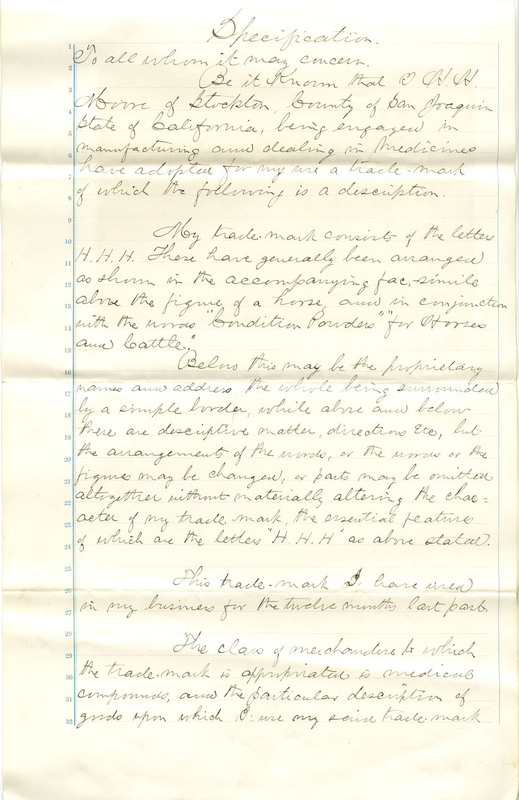 Specification.
1 To all whom it may concern.
2 Be it Known that I H. H.
3 Moore of Stockton, County of San Joaquin
4 State of California, being engaged in
5 manufacturing and dealing in Medicines
6 have adopted for my use a trade-mark
7 of which the following is a description.
8
9 My trade-mark consists of the letter
10 H. H. H. These have generally been arranged
11 as shown in the accompanying fac-simile
12 above the figure of a horse, and in conjunction
13 with the words "Condition Powders" for Horses
14 and Cattle."
15 Below this may be the proprietary
16 names and address the whole being surrounded
17 by a simple border, while above and below
18 there are descriptive matter, directions &c, but
19 the arrangements of the words, or the words or the
20 figures may be changed, or parts may be omitted
21 altogether without materially altering the char=
22 acter of my trade mark, the essential feature
23 of which are the letters "H. H. H" as above stated.
24
25 This trade-mark I have used
26 in my business for the twelve months last past.
27
28 The class of merchandise to which
29 the trade-mark is appropriated is medical
30 compounds, and the particular description of
31 goods upon which I use my said trade-mark
32